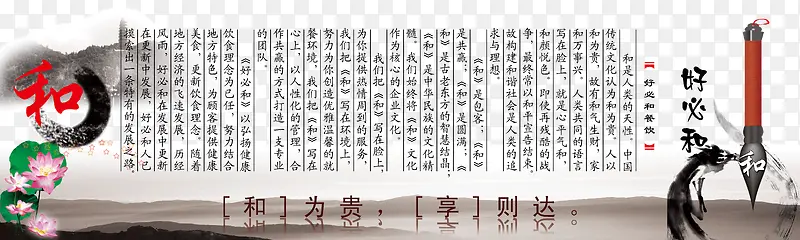 好必和
和
【好必和餐饮】
和是人类的天性。中国
传统文化认为和为贵。人以
和为贵，故有和气生财，家
和万事兴。人类共同的语言
写在脸上，就是心平气和，
和颜悦色。即使再残酷的战
争，最终常以和平宣告结束，
故构建和谐社会是人类的追
求与理想。
《和》是包客；《和》
是共赢；《和》是圆满；
《和》是古老东方的智慧结晶，
《和》是中华民族的文化精
髓。我们始终将《和》文化
作为核心的企业文化。
我们把《和》写在脸上，
为你提供热情周到的服务，
我们把《和》写在环境上，
努力为你创造优雅温馨的就
餐环境，我们把《和》写在
心上，以人性化的管理，合
作共赢的方式打造一支专业
的团队。
《好必和》以弘扬健康
饮食理念为己任，努力结合
地方特色，为顾客提供健康
美食，更新饮食理念。随着
地方经济的飞速发展，历经
风雨，好必和在发展中更新
在更新中发展，好必和人已
摸索出一条特有的发展之路。
和
[和]为贵，[享]则达。